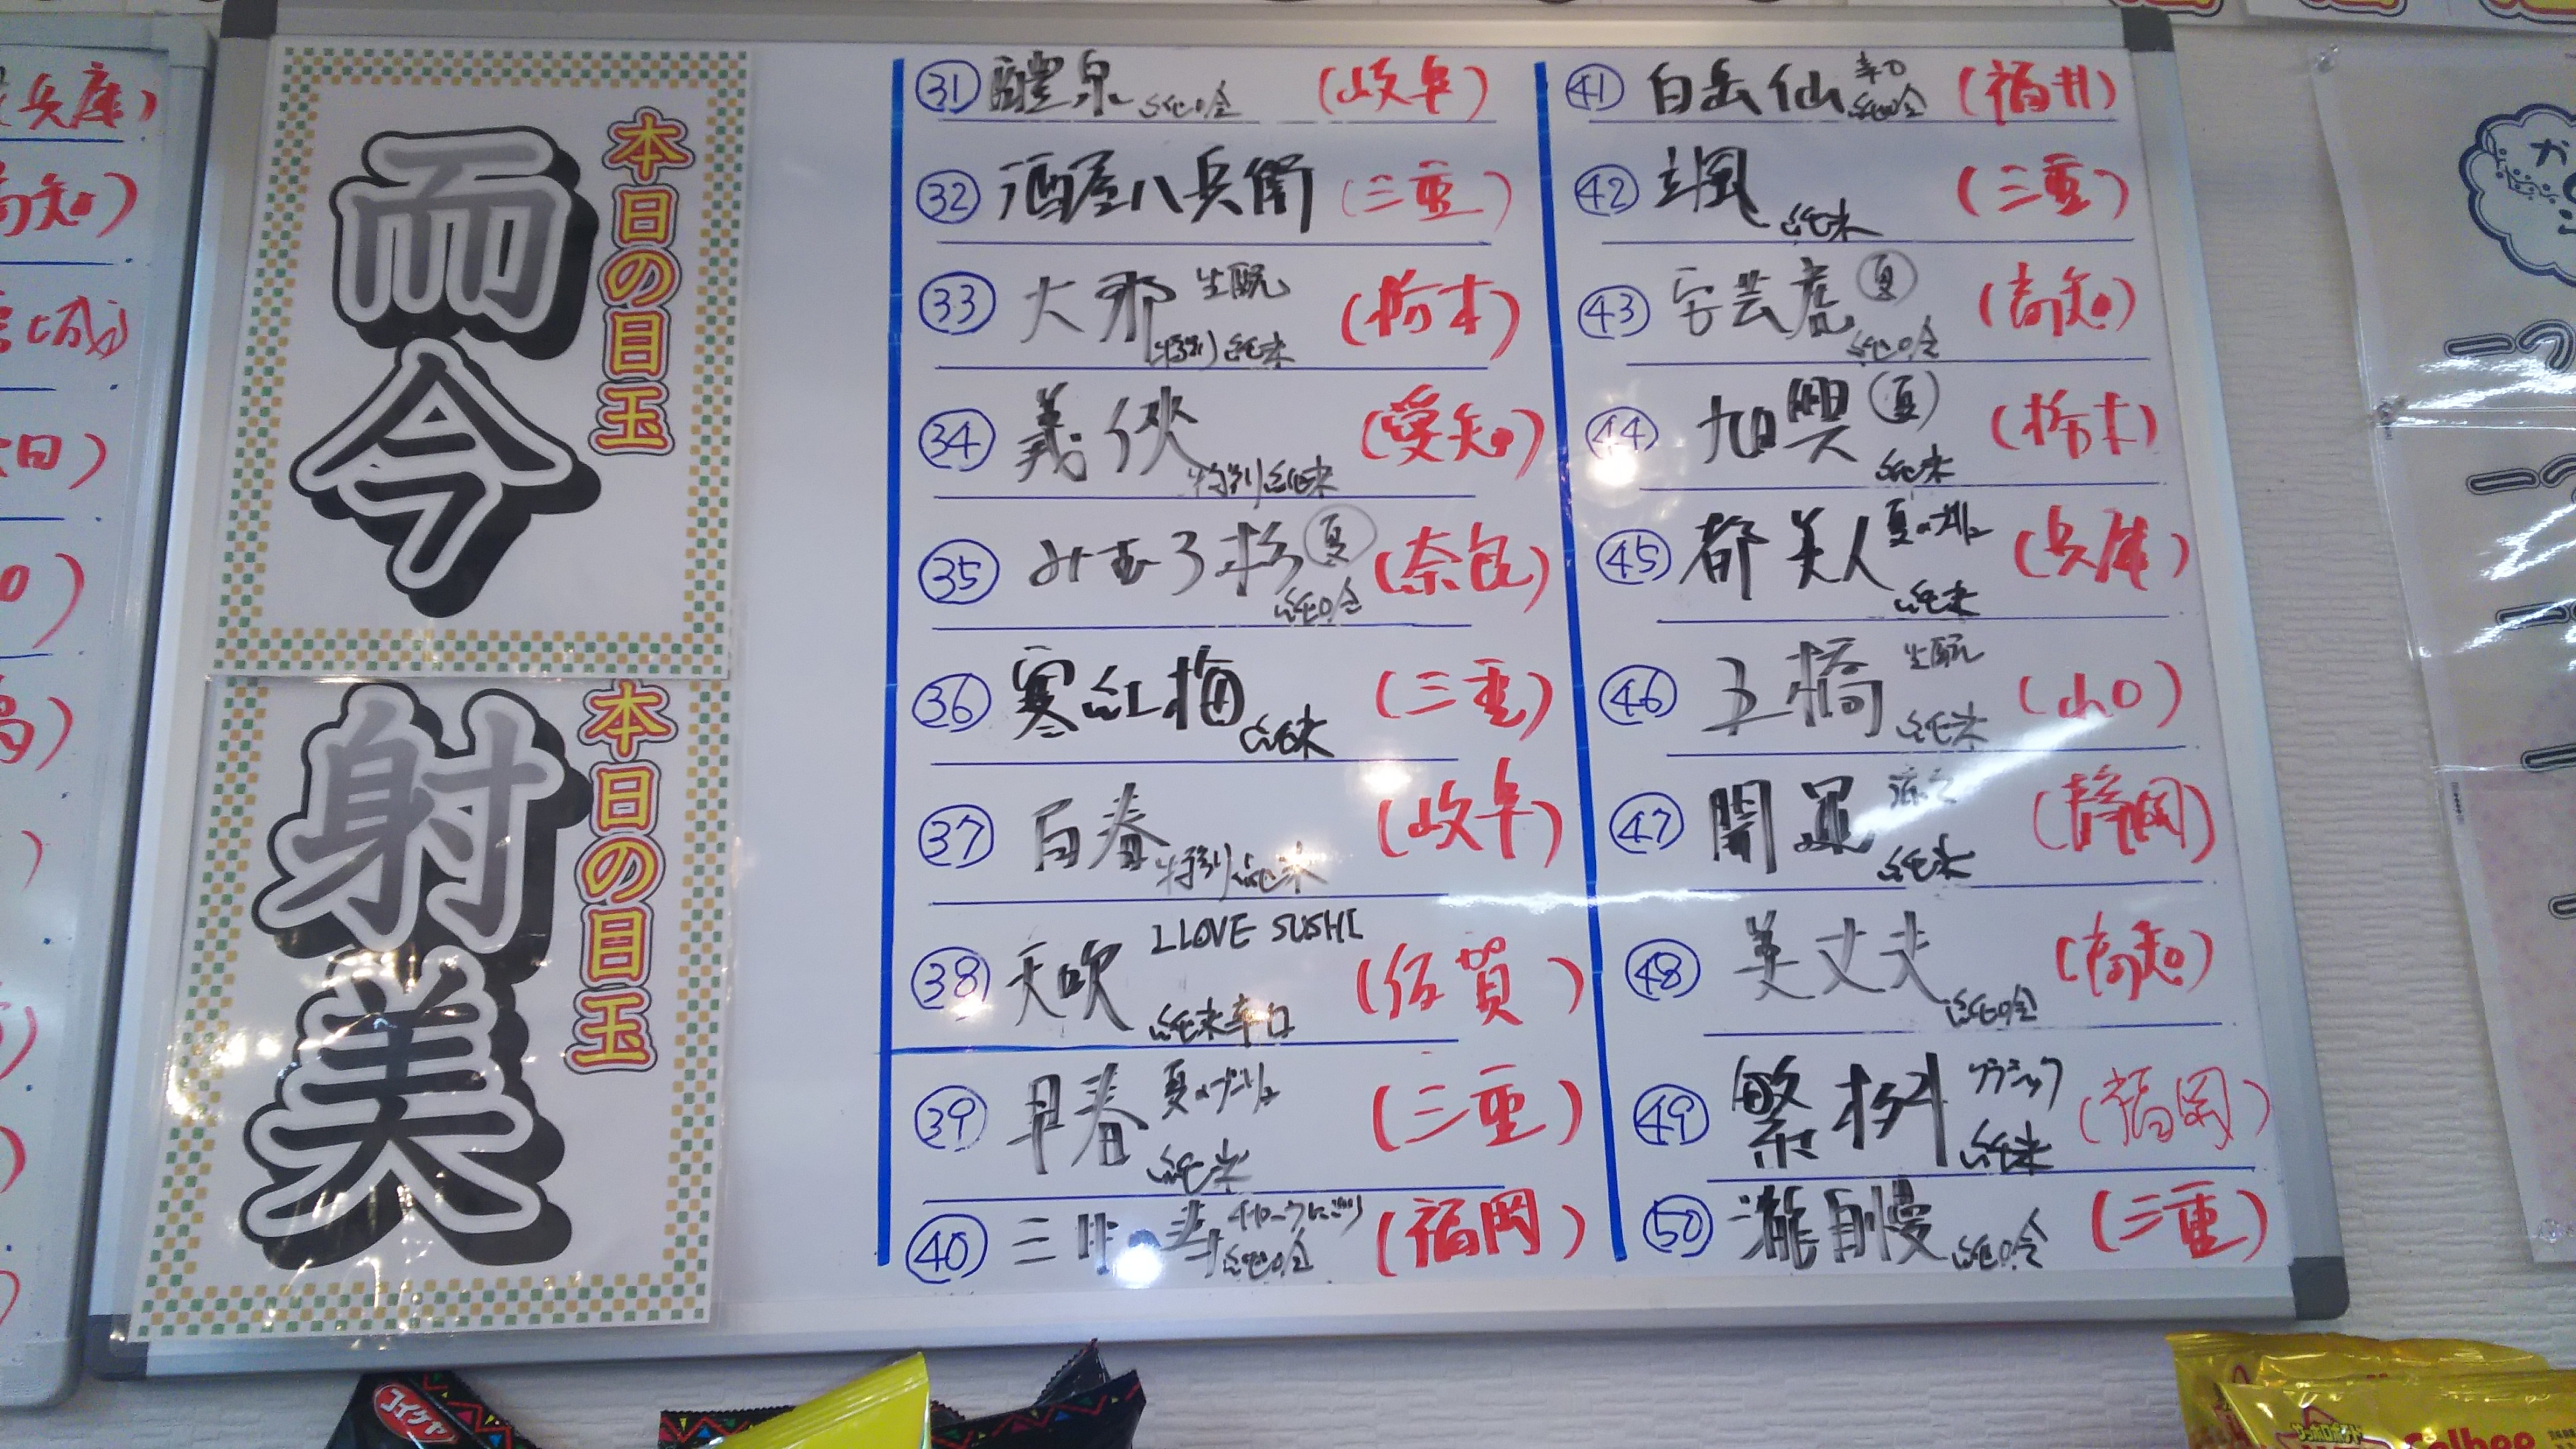 本日の目玉
而今
本日の目玉
射美
㉛ 醴泉 純吟 (岐阜)
㉜ 酒屋八兵衛 (三重)
㉝ 大那 生酛 特別純米 (栃木)
㉞ 義侠 特別純米 (愛知)
㉟ みむろ杉 夏 純吟 (奈良)
㊱ 寒紅梅 純米 (三重)
㊲ 百春 特別純米 (岐阜)
㊳ 天吹 I LOVE SUSHI 純米辛口 (佐賀)
㊴ 早春 夏の 純米 (三重)
㊵ 三井の寿 純吟 (福岡)
㊶ 白岳仙 辛口 純吟 (福井)
㊷ 颯 純米 (三重)
㊸ 安芸虎 夏 純吟 (高知)
㊹ 旭興 (夏) 純米 (栃木)
㊺ 都美人 夏の 純米 (兵庫)
㊻ 五橋 生酛 純米 (山口)
㊼ 開運 涼々 純米 (静岡)
㊽ 美丈夫 純吟 (高知)
㊾ 繁桝 クラシック 純米 (福岡)
㊿ 瀧自慢 純吟 (三重)
兵庫)
高知)
コイケヤ
Calbee